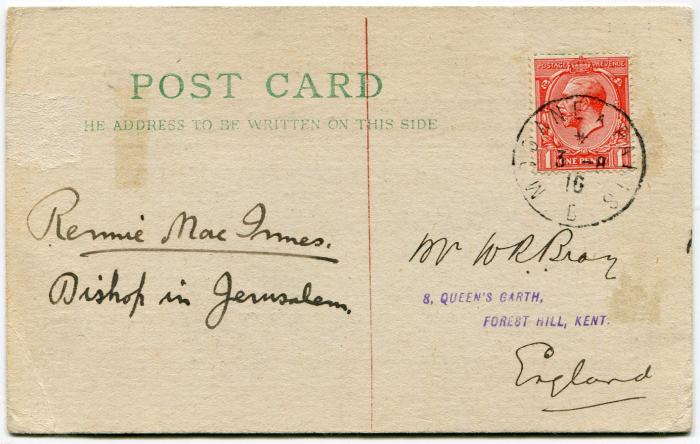 POST CARD
HE ADDRESS TO BE WRITTEN ON THIS SIDE
POSTAGE REVENUE
1 ONE PENNY 1
3 - 8
16
D
Rennie Mac Innes.
Bishop in Jerusalem.
Mr W R Bray
8, QUEEN'S GARTH,
FOREST HILL, KENT.
England